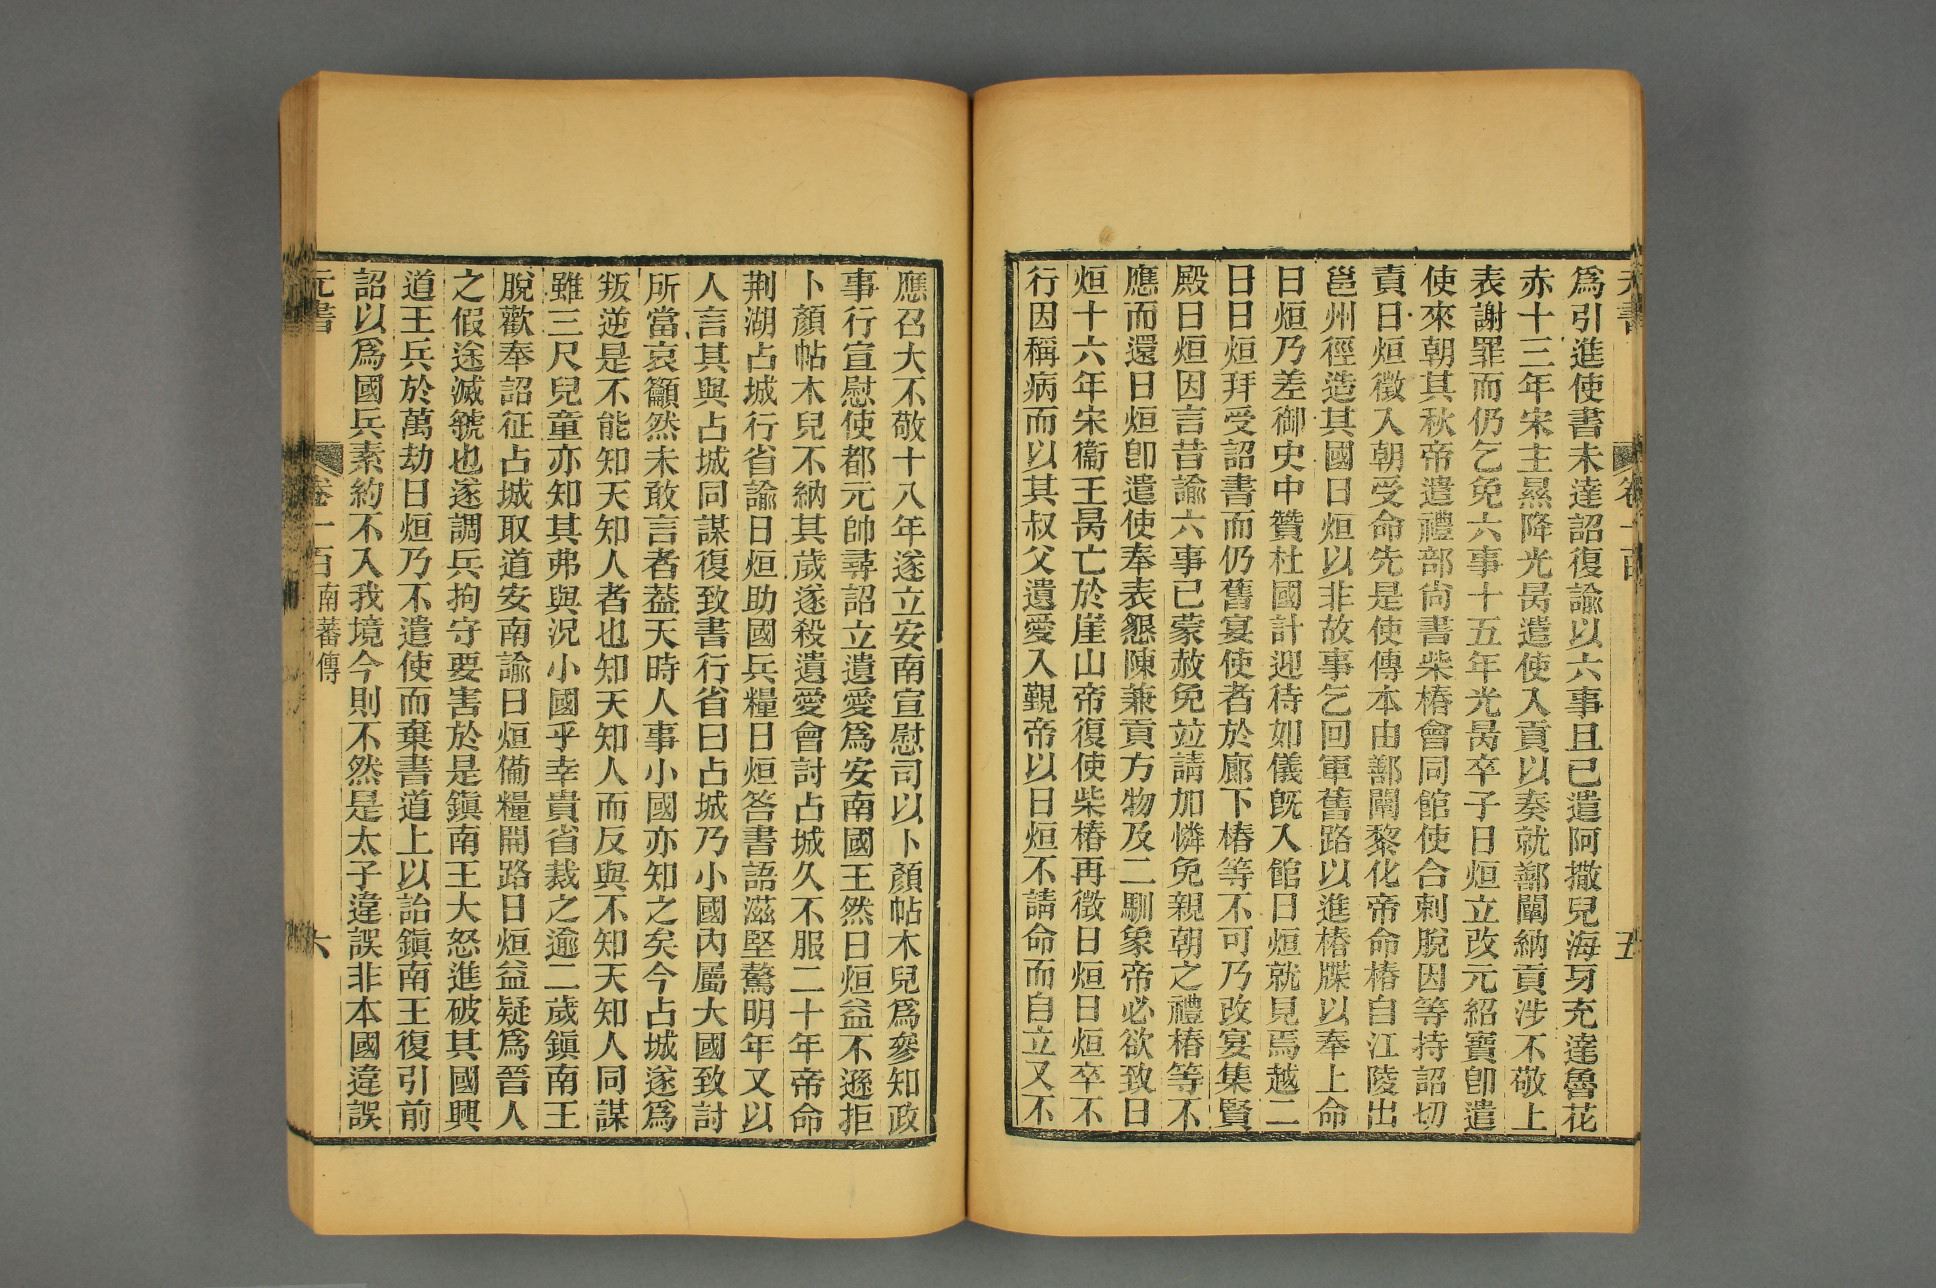 爲引進使書未達詔復諭以六事且已遣阿撒兒海牙充達魯花
赤十三年宋主㬎降光昺遣使入貢以奏就鄯闡納貢涉不敬上
表謝罪而仍乞免六事十五年光昺卒子日烜立改元紹寶卽遣
使來朝其秋帝遣禮部尚書柴椿會同館使合剌脫因等持詔切
責日烜徵入朝受命先是使傳本由鄯闡黎化帝命椿自江陵出
邕州徑造其國日烜以非故事乞回軍舊路以進椿牒以奉上命
日烜乃差御史中贊杜國計迎待如儀旣入館日烜就見焉越二
日日烜拜受詔書而仍舊宴使者於廊下椿等不可乃改宴集賢
殿日烜因言昔諭六事已蒙赦免竝請加憐免親朝之禮椿等不
應而還日烜卽遣使奉表懇陳兼貢方物及二馴象帝必欲致日
烜十六年宋衞王昺亡於崖山帝復使柴椿再徵日烜日烜卒不
行因稱病而以其叔父遺愛入覲帝以日烜不請命而自立又不
五
應召大不敬十八年遂立安南宣慰司以卜顏帖木兒爲參知政
事行宣慰使都元帥尋詔立遺愛爲安南國王然日烜益不遜拒
卜顏帖木兒不納其歲遂殺遺愛會討占城久不服二十年帝命
荆湖占城行省諭日烜助國兵糧日烜答書語滋堅驁明年又以
人言其與占城同謀復致書行省曰占城乃小國內屬大國致討
所當哀籲然未敢言者蓋天時人事小國亦知之矣今占城遂爲
叛逆是不能知天知人者也知天知人而反與不知天知人同謀
雖三尺兒童亦知其弗與況小國乎幸貴省裁之逾二歲鎭南王
脫歡奉詔征占城取道安南諭日烜備糧開路日烜益疑爲晉人
之假途滅虢也遂調兵拘守要害於是鎭南王大怒進破其國興
道王兵於萬劫日烜乃不遣使而棄書道上以詒鎭南王復引前
詔以爲國兵素約不入我境今則不然是太子違誤非本國違誤
元書 卷一百 南蕃傳 六